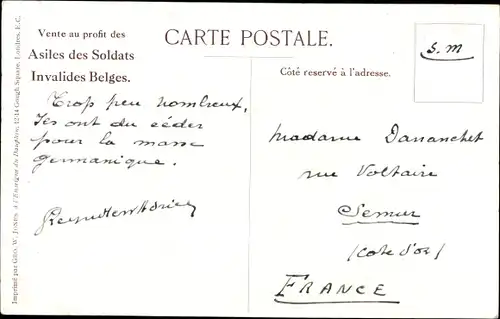 Imprimé par Geo. W. Jones, A l'Enseigne du Dauphin, 12-14 Gough Square, Londres, E.C.
Vente au profit des
Asiles des Soldats
Invalides Belges.
Trop peu nombreux,
Ils ont du céder
pour la masse
germanique.
CARTE POSTALE.
Côté reservé à l'adresse.
S.M
Madame Dananchet
rue Voltaire
Semur
(Cote d'Or)
FRANCE